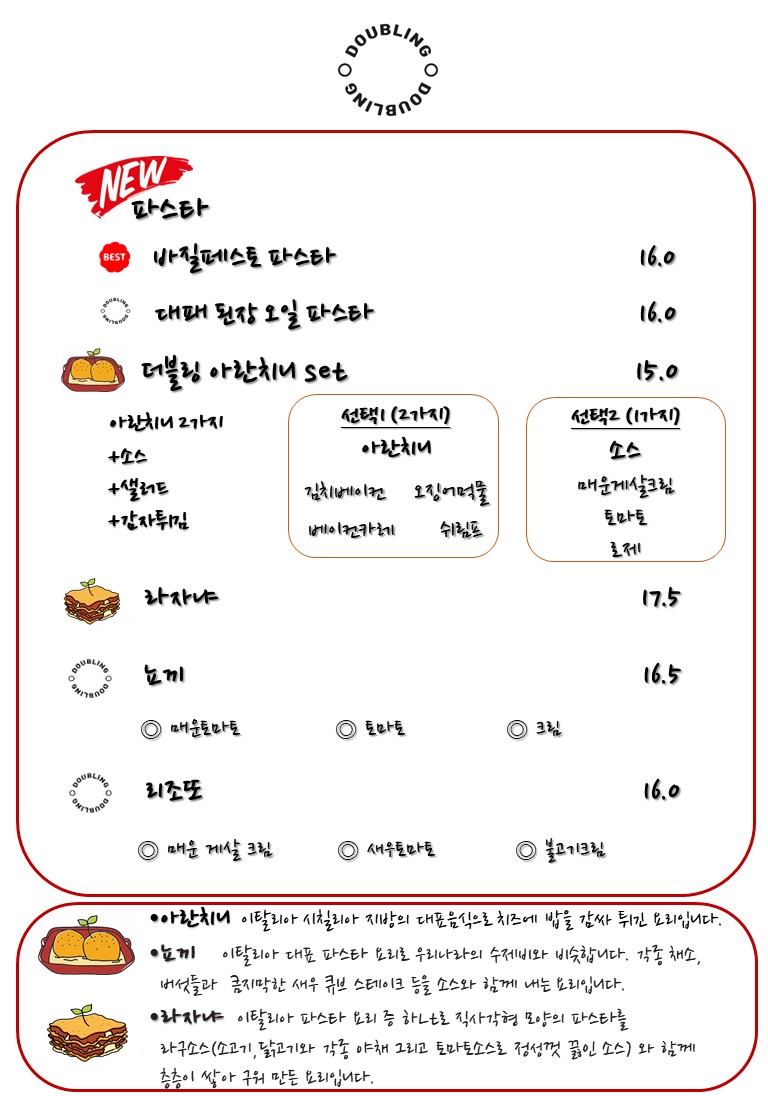 DOUBLING
DOUBLING
NEW
파스타
BEST 바질페스토 파스타 16.0
DOUBLING DOUBLING 대패 된장 오일 파스타 16.0
더블링 아란치니 set 15.0
아란치니 2가지
+소스
+샐러드
+감자튀김
선택1 (2가지)
아란치니
김치베이컨 오징어먹물
베이컨카레 쉬림프
선택2 (1가지)
소스
매운게살크림
토마토
로제
라자냐 17.5
DOUBLING DOUBLING 뇨끼 16.5
◎ 매운토마토 ◎ 토마토 ◎ 크림
DOUBLING DOUBLING 리조또 16.0
◎ 매운 게살 크림 ◎ 새우토마토 ◎ 불고기크림
•아란치니 이탈리아 시칠리아 지방의 대표음식으로 치즈에 밥을 감싸 튀긴 요리입니다.
•뇨끼 이탈리아 대표 파스타 요리로 우리나라의 수제비와 비슷합니다. 각종 채소,
버섯들과 큼지막한 새우 큐브 스테이크 등을 소스와 함께 내는 요리입니다.
•라자냐 이탈리아 파스타 요리 중 하나로 직사각형 모양의 파스타를
라구소스(소고기,닭고기와 각종 야채 그리고 토마토소스로 정성껏 끓인 소스) 와 함께
층층이 쌓아 구워 만든 요리입니다.